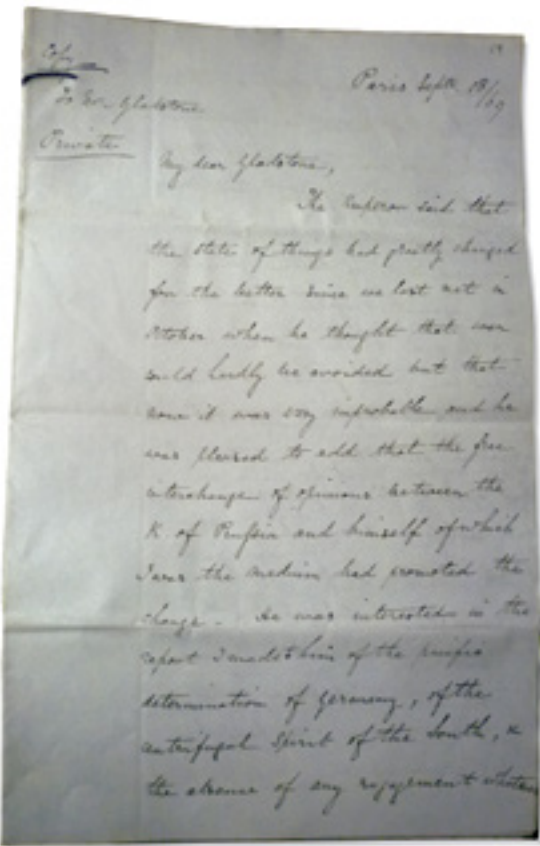 Copy
19
Paris Septr 18/69
To Mr Gladstone
Private
My dear Gladstone,
The Emperor said that
the state of things had greatly changed
for the better since we last met in
October when he thought that war
could hardly be avoided but that
now it was very improbable and he
was pleased to add that the free
interchange of opinions between the
K. of Prussia and himself of which
I was the medium had promoted the
change. He was interested in the
report I made to him of the pacific
determination of Germany, of the
centrifugal spirit of the South, &
the absence of any engagement